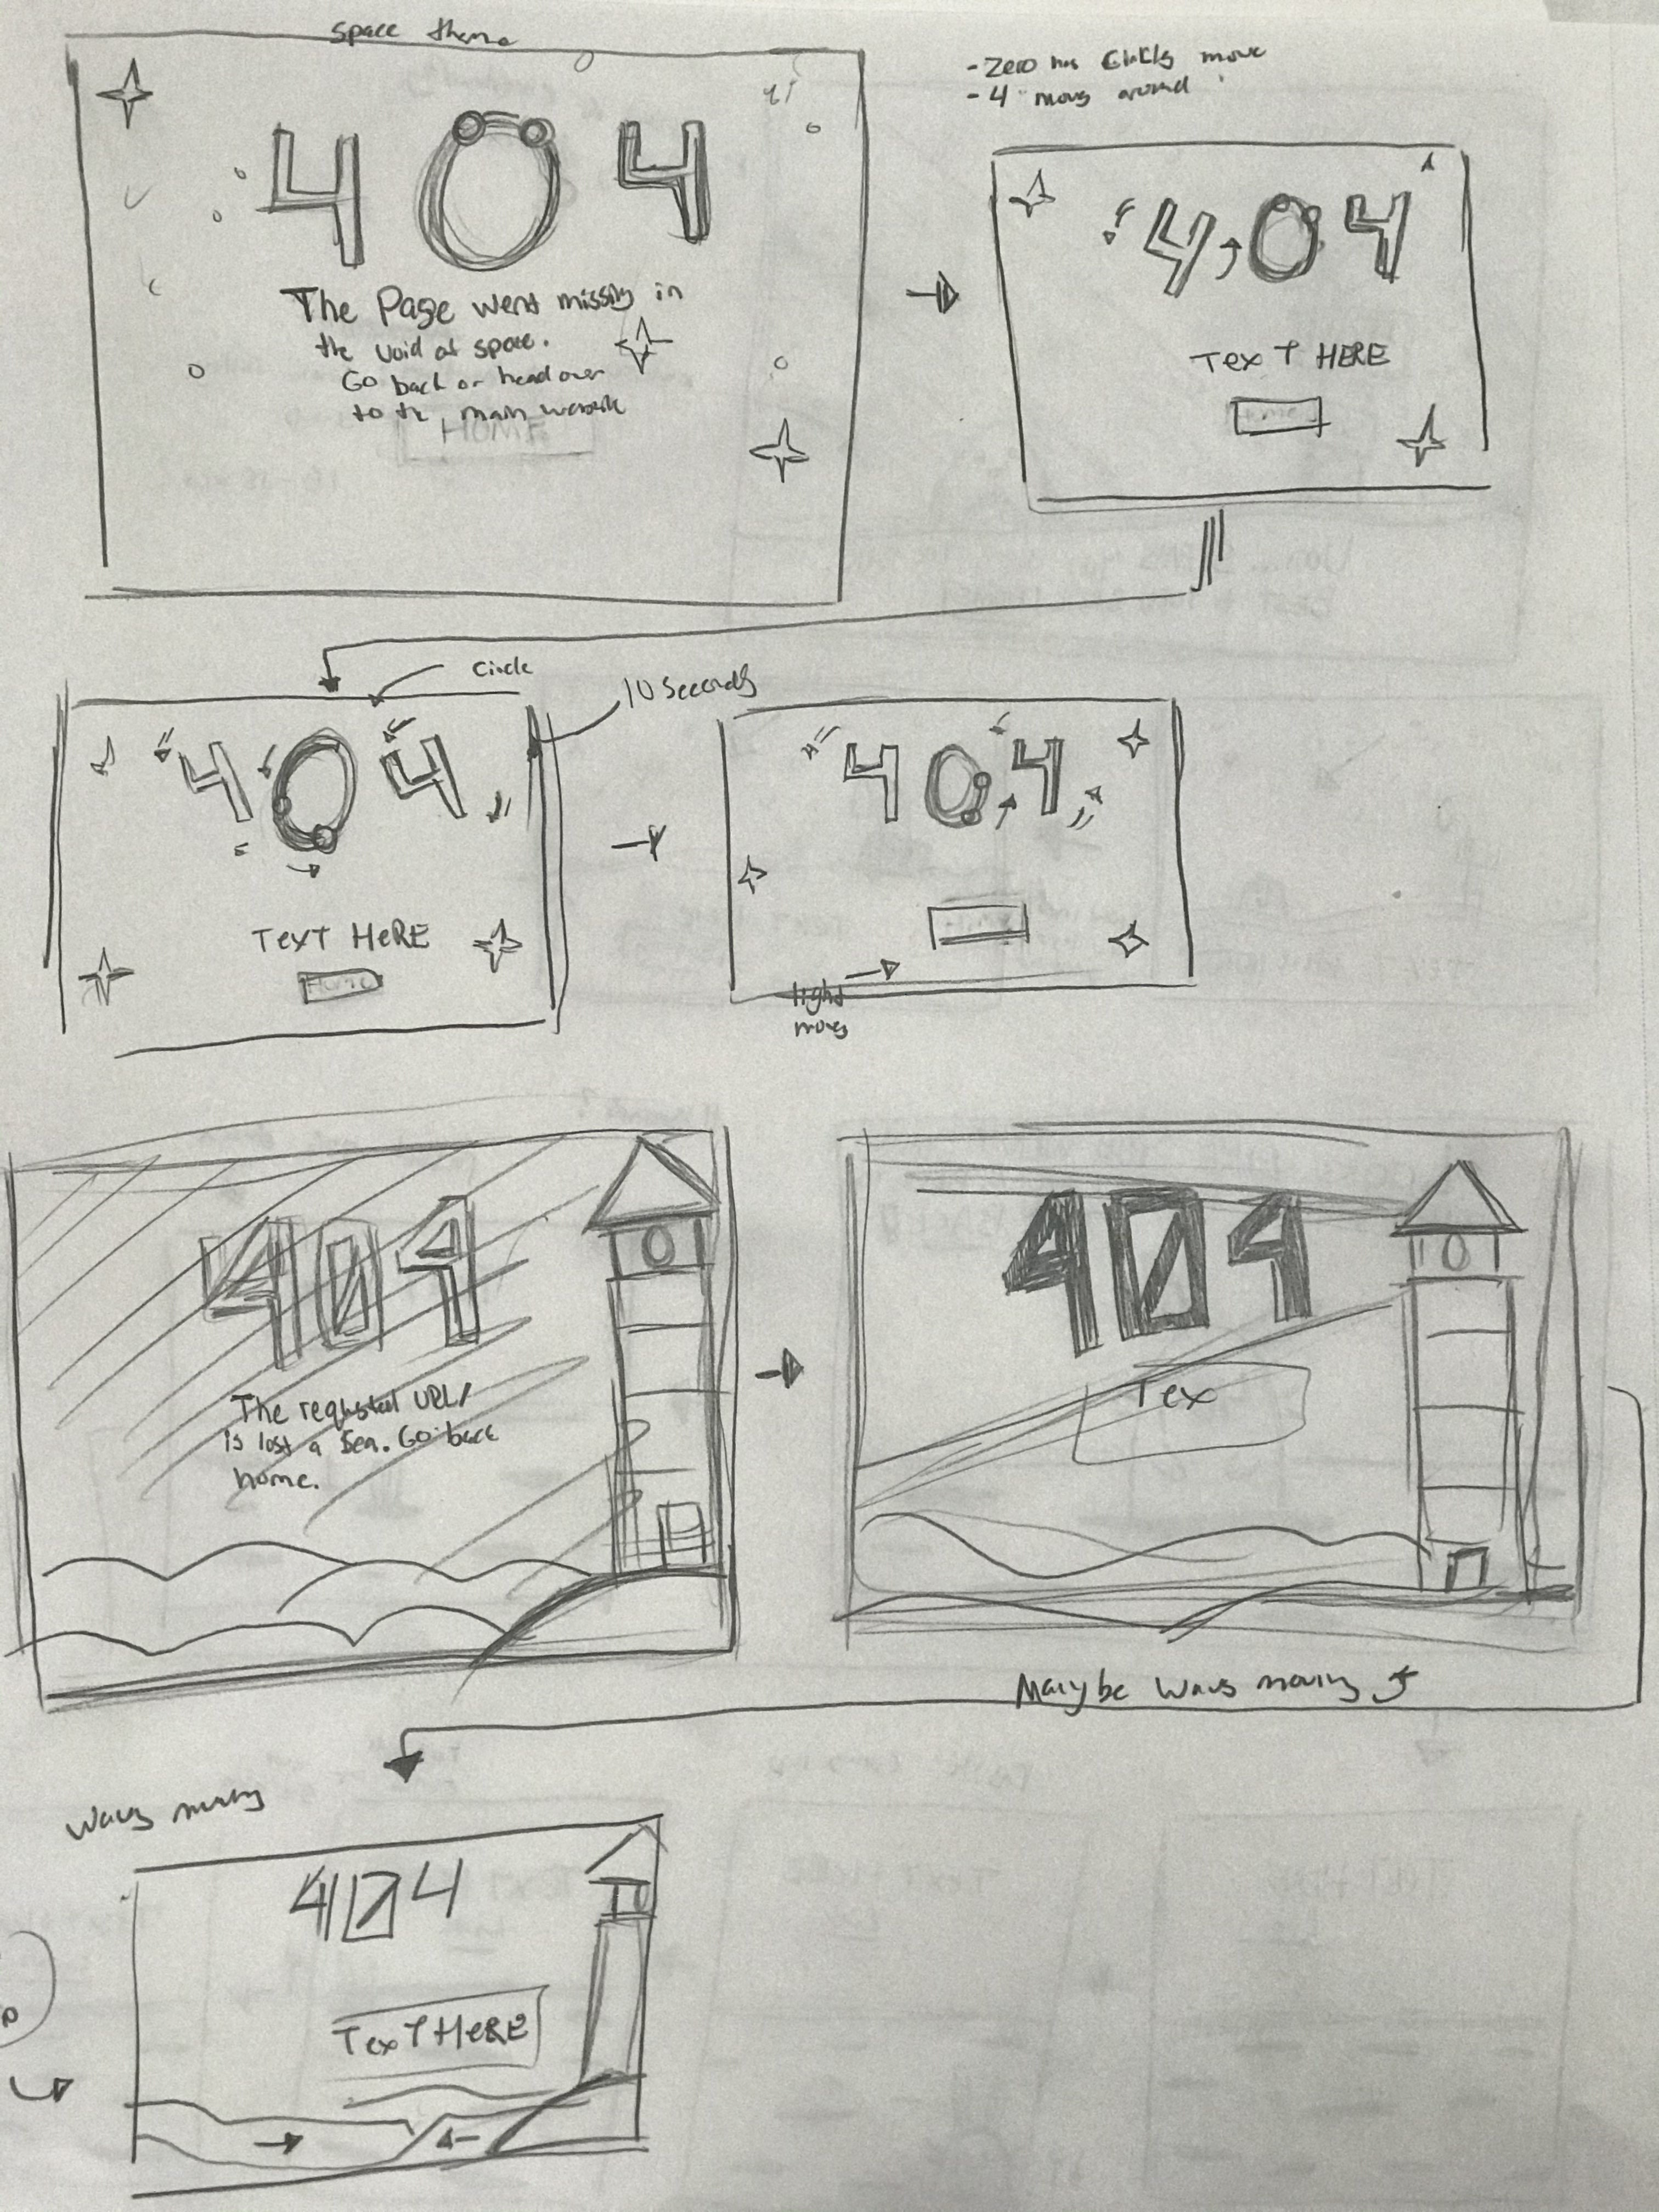 space theme
404
The Page went missing in
the void of space.
Go back or head over
to the main website
HOME
- Zero has circles move
- 4 moves around
404
TexT HERE
Circle
10 Seconds
404
TexT HeRE
HOME
404
light
moves
404
The requested URL/
is lost a Sea. Go back
home.
404
Tex
Mary be waves moving
Waves moving
404
TexT HeRE